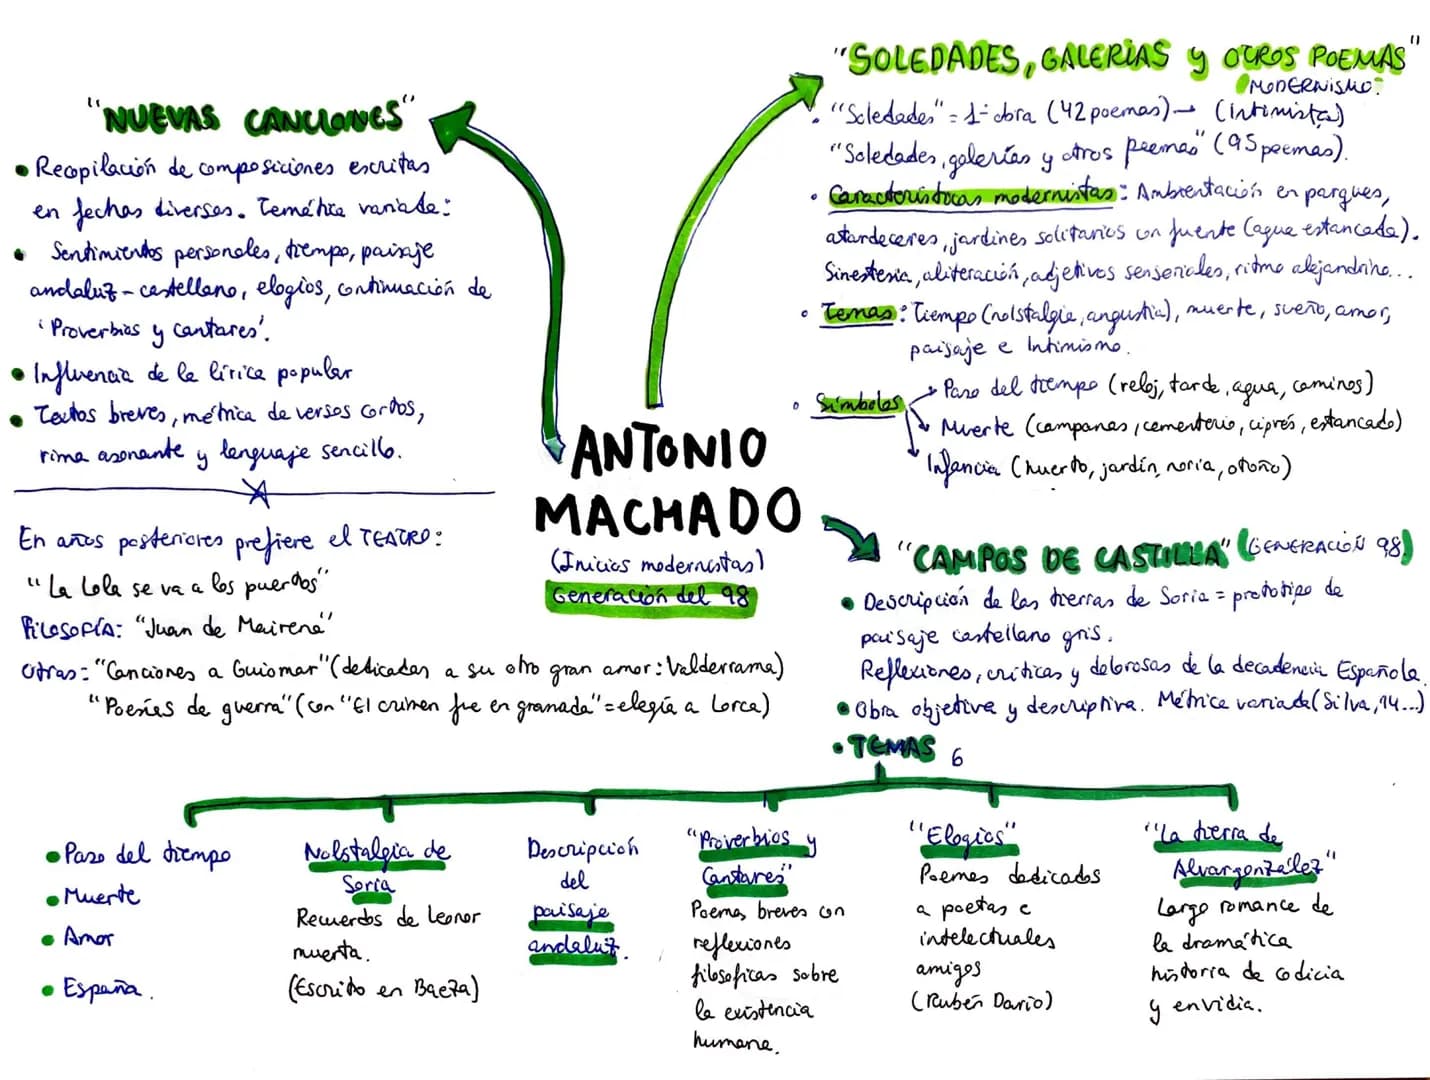 "NUEVAS CANCIONES"
• Recopilación de composiciones escritas
en fechas diversas. Temática variada:
• Sentimientos personales, tiempo, paisaje
andaluz-castellano, elogios, continuación de
'Proverbios y cantares'.
• Influencia de la lírica popular
• Textos breves, métrica de versos cortos,
rima asonante y lenguaje sencillo.
En años posteriores prefiere el TEATRO:
"La Lola se va a los puertos"
FILOSOFÍA: "Juan de Mairena"
Otras: "Canciones a Guiomar" (dedicadas a su otro gran amor: Valderrama)
"Poesías de guerra" (con "El crimen fue en granada" = elegía a Lorca)
ANTONIO
MACHADO
(Inicios modernistas)
Generación del 98
"SOLEDADES, GALERÍAS y OTROS POEMAS"
MODERNISMO.
• "Soledades" = 1ª obra (42 poemas) → (Intimista)
"Soledades, galerías y otros poemas" (95 poemas).
• Características modernistas: Ambientación en parques,
atardeceres, jardines solitarios con fuente (agua estancada).
Sinestesia, aliteración, adjetivos sensoriales, ritmo alejandrino...
• Temas: Tiempo (nolstalgia, angustia), muerte, sueño, amor,
paisaje e Intimismo.
• Símbolos → Paso del tiempo (reloj, tarde, agua, caminos)
→ Muerte (campanas, cementerio, ciprés, estancado)
→ Infancia (huerto, jardín, noria, otoño)
"CAMPOS DE CASTILLA" (GENERACIÓN 98)
• Descripción de las tierras de Soria = prototipo de
paisaje castellano gris.
Reflexiones, críticas y dolorosas de la decadencia Española.
• Obra objetiva y descriptiva. Métrica variada (Silva, 14...)
• TEMAS 6
• Paso del tiempo
• Muerte
• Amor
• España.
Nolstalgia de
Soria
Recuerdos de Leonor
muerta.
(Escrito en Baeza)
Descripción
del
paisaje
andaluz.
"Proverbios y
Cantares"
Poemas breves con
reflexiones
filosóficas sobre
la existencia
humana.
"Elogios"
Poemas dedicados
a poetas e
intelectuales
amigos
(Rubén Darío)
"La tierra de
Alvargonzález"
Largo romance de
la dramática
historia de codicia
y envidia.